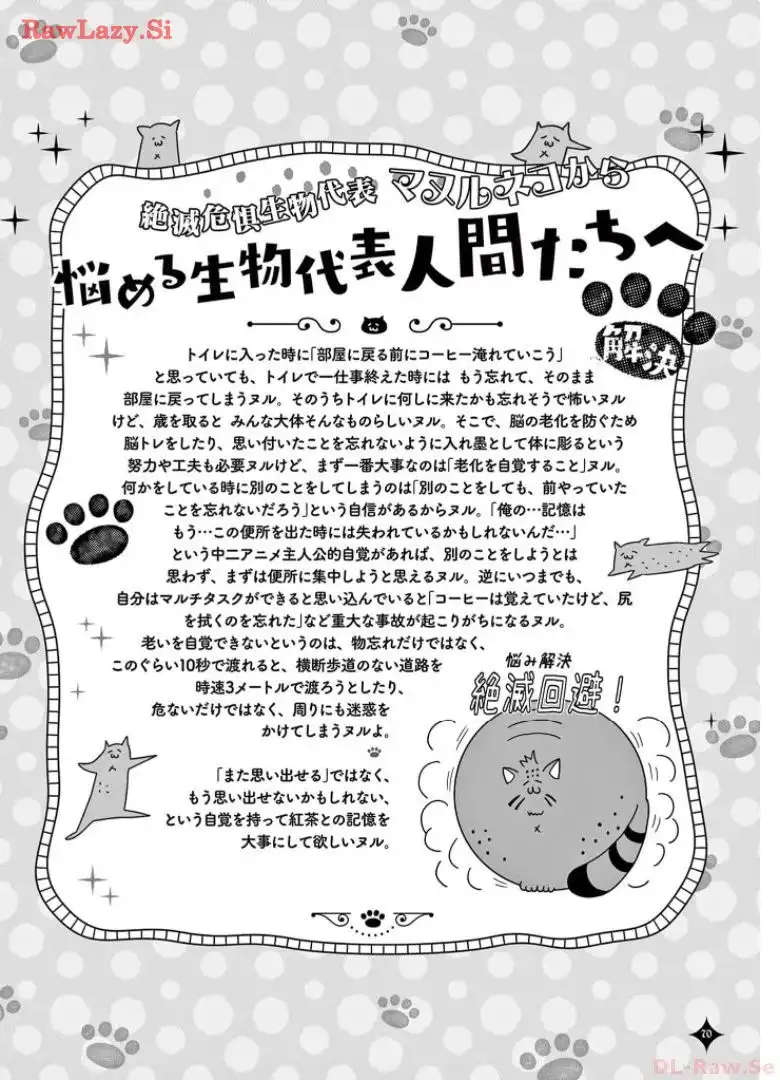 RawLazy.Si
絶滅危惧生物代表 マヌルネコから
悩める生物代表人間たちへ
解決
トイレに入った時に「部屋に戻る前にコーヒー淹れていこう」
と思っていても、トイレで一仕事終えた時には もう忘れて、そのまま
部屋に戻ってしまうヌル。そのうちトイレに何しに来たかも忘れそうで怖いヌル
けど、歳を取ると みんな大体そんなものらしいヌル。そこで、脳の老化を防ぐため
脳トレをしたり、思い付いたことを忘れないように入れ墨として体に彫るという
努力や工夫も必要ヌルけど、まず一番大事なのは「老化を自覚すること」ヌル。
何かをしている時に別のことをしてしまうのは「別のことをしても、前やっていた
ことを忘れないだろう」という自信があるからヌル。「俺の…記憶は
もう…この便所を出た時には失われているかもしれないんだ…」
という中二アニメ主人公的自覚があれば、別のことをしようとは
思わず、まずは便所に集中しようと思えるヌル。逆にいつまでも、
自分はマルチタスクができると思い込んでいると「コーヒーは覚えていたけど、尻
を拭くのを忘れた」など重大な事故が起こりがちになるヌル。
老いを自覚できないというのは、物忘れだけではなく、
このぐらい10秒で渡れると、横断歩道のない道路を
時速3メートルで渡ろうとしたり、
危ないだけではなく、周りにも迷惑を
かけてしまうヌルよ。
「また思い出せる」ではなく、
もう思い出せないかもしれない、
という自覚を持って紅茶との記憶を
大事にして欲しいヌル。
悩み解決
絶滅回避！
70
DL-Raw.Se